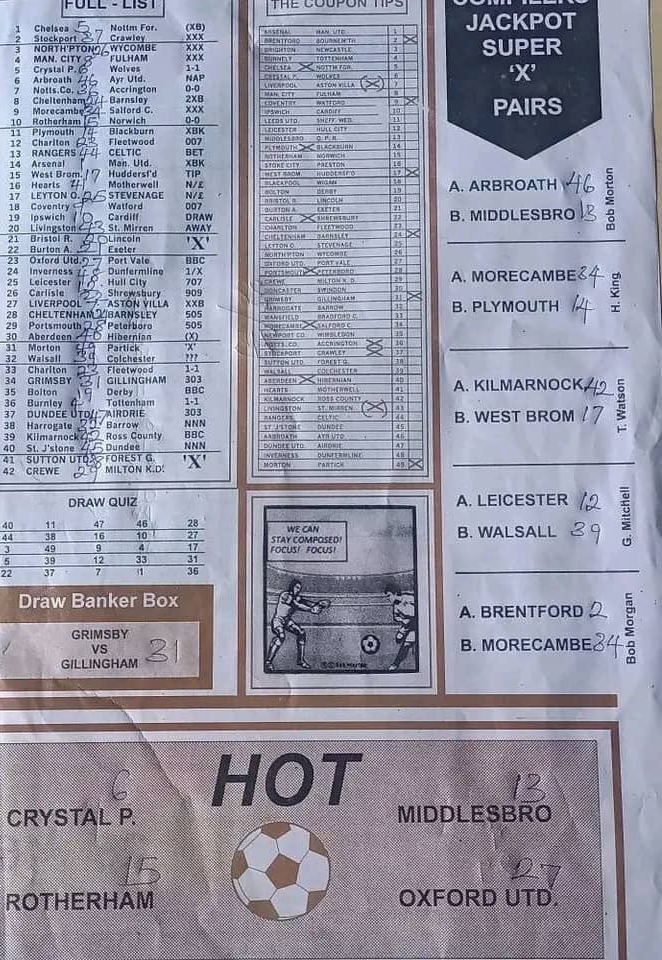 FULL - LIST
1 Chelsea 5 Nottm For. (XB)
2 Stockport 37 Crawley XXX
3 NORTH'PTON 26 WYCOMBE XXX
4 MAN. CITY 8 FULHAM XXX
5 Crystal P. 6 Wolves 1-1
6 Arbroath 46 Ayr Utd. NAP
7 Notts.Co. Accrington 0-0
8 Cheltenham 24 Barnsley 2XB
9 Morecambe 34 Salford C. XXX
10 Rotherham 15 Norwich 0-0
11 Plymouth 14 Blackburn XBK
12 Charlton 23 Fleetwood 007
13 RANGERS 44 CELTIC BET
14 Arsenal 1 Man. Utd. XBK
15 West Brom. 17 Huddersf'd TIP
16 Hearts 41 Motherwell N/£
17 LEYTON O. 25 STEVENAGE N/£
18 Coventry Watford 007
19 Ipswich 10 Cardiff DRAW
20 Livingston 43 St. Mirren AWAY
21 Bristol R. 20 Lincoln 'X'
22 Burton A. Exeter
23 Oxford Utd. 27 Port Vale BBC
24 Inverness 48 Dunfermline 1/X
25 Leicester Hull City 707
26 Carlisle 22 Shrewsbury 909
27 LIVERPOOL ASTON VILLA XXB
28 CHELTENHAM BARNSLEY 505
29 Portsmouth 28 Peterboro 505
30 Aberdeen 40 Hibernian (X)
31 Morton 49 Partick 'X'
32 Walsall 39 Colchester ???
33 Charlton 23 Fleetwood 1-1
34 GRIMSBY 31 GILLINGHAM 303
35 Bolton 19 Derby BBC
36 Burnley 4 Tottenham 1-1
37 DUNDEE UTD. 47 AIRDRIE 303
38 Harrogate Barrow NNN
39 Kilmarnock 42 Ross County BBC
40 St. J'stone 45 Dundee NNN
41 SUTTON UTD. FOREST G. 'X'
42 CREWE 29 MILTON K.D.
DRAW QUIZ
40 11 47 46 28
44 38 16 10 27
3 49 9 4 17
5 39 12 33 31
22 37 7 1 36
Draw Banker Box
GRIMSBY
VS
GILLINGHAM 31
THE COUPON TIPS
ARSENAL MAN. UTD. 1
BRENTFORD BOURNEM'TH 2
BRIGHTON NEWCASTLE 3
BURNLEY TOTTENHAM 4
CHELSEA NOTTM FOR. 5
CRYSTAL P. WOLVES 6
LIVERPOOL ASTON VILLA 7
MAN. CITY FULHAM 8
COVENTRY WATFORD 9
IPSWICH CARDIFF 10
LEEDS UTD. SHEFF. WED. 11
LEICESTER HULL CITY 12
MIDDLESBRO Q. P. R. 13
PLYMOUTH BLACKBURN 14
ROTHERHAM NORWICH 15
STOKE CITY PRESTON 16
WEST BROM. HUDDERSF'D 17
BLACKPOOL WIGAN 18
BOLTON DERBY 19
BRISTOL R. LINCOLN 20
BURTON A. EXETER 21
CARLISLE SHREWSBURY 22
CHARLTON FLEETWOOD 23
CHELTENHAM BARNSLEY 24
LEYTON O. STEVENAGE 25
NORTH'PTON WYCOMBE 26
OXFORD UTD. PORT VALE 27
PORTSMOUTH PETERBORO 28
CREWE MILTON K.D. 29
DONCASTER SWINDON 30
GRIMSBY GILLINGHAM 31
HARROGATE BARROW 32
MANSFIELD BRADFORD C. 33
MORECAMBE SALFORD C. 34
NEWPORT CO. WIMBLEDON 35
NOTTS CO. ACCRINGTON 36
STOCKPORT CRAWLEY 37
SUTTON UTD. FOREST G. 38
WALSALL COLCHESTER 39
ABERDEEN HIBERNIAN 40
HEARTS MOTHERWELL 41
KILMARNOCK ROSS COUNTY 42
LIVINGSTON ST. MIRREN 43
RANGERS CELTIC 44
ST. J'STONE DUNDEE 45
ARBROATH AYR UTD. 46
DUNDEE UTD. AIRDRIE 47
INVERNESS DUNFERMLINE 48
MORTON PARTICK 49
WE CAN
STAY COMPOSED!
FOCUS! FOCUS!
COMPILERS
JACKPOT
SUPER
'X'
PAIRS
A. ARBROATH 46
B. MIDDLESBRO 13
Bob Morton
A. MORECAMBE 34
B. PLYMOUTH 14
H. King
A. KILMARNOCK 42
B. WEST BROM 17
T. Watson
A. LEICESTER 12
B. WALSALL 39
G. Mitchell
A. BRENTFORD 2
B. MORECAMBE 34
Bob Morgan
HOT
6
CRYSTAL P.
15
ROTHERHAM
13
MIDDLESBRO
27
OXFORD UTD.